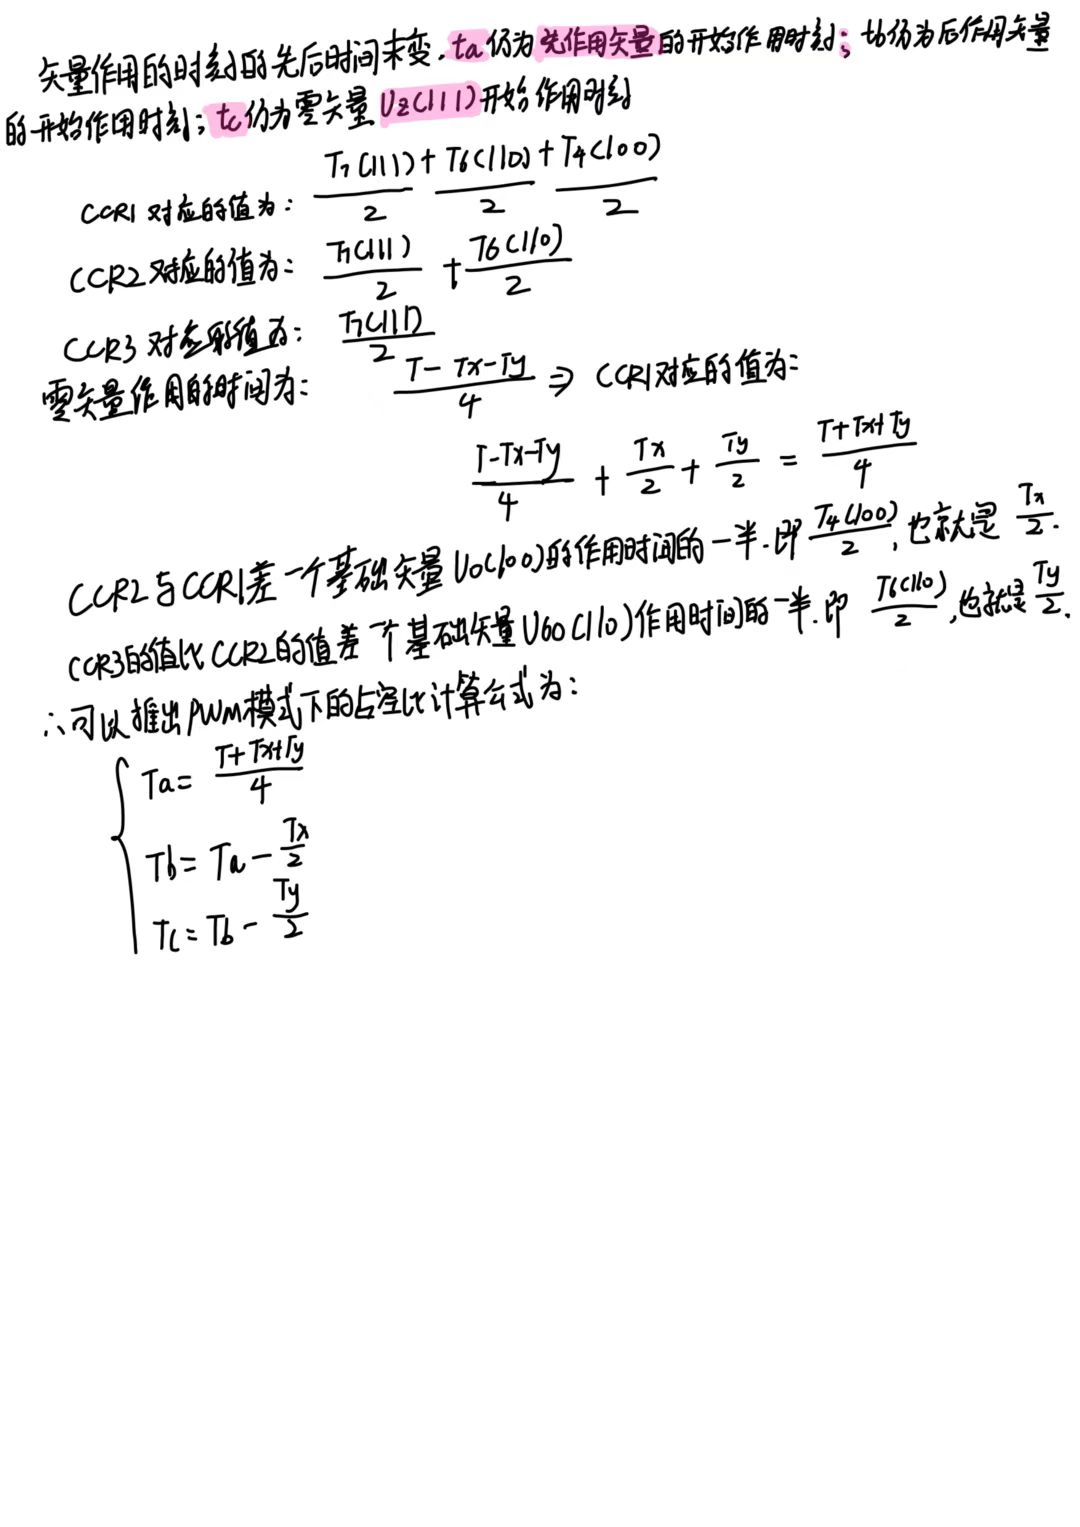 矢量作用的时刻的先后时间未变.ta仍为先作用矢量的开始作用时刻;tb仍为后作用矢量
的开始作用时刻;tc仍为零矢量Uz(111)开始作用时刻
CCR1对应的值为: T7(111)/2 + T6(110)/2 + T4(100)/2
CCR2对应的值为: T7(111)/2 + T6(110)/2
CCR3对应的值为: T7(111)/2
零矢量作用的时间为: (T-Tx-Ty)/4 ⇒ CCR1对应的值为:
(T-Tx-Ty)/4 + Tx/2 + Ty/2 = (T+Tx+Ty)/4
CCR2与CCR1差一个基础矢量U0(100)的作用时间的一半.即 T4(100)/2,也就是 Tx/2.
CCR3的值比CCR2的值差一个基础矢量U60(110)作用时间的一半.即 T6(110)/2,也就是 Ty/2.
∴可以推出PWM模式下的占空比计算公式为:
Ta= (T+Tx+Ty)/4
Tb= Ta - Tx/2
Tc= Tb - Ty/2